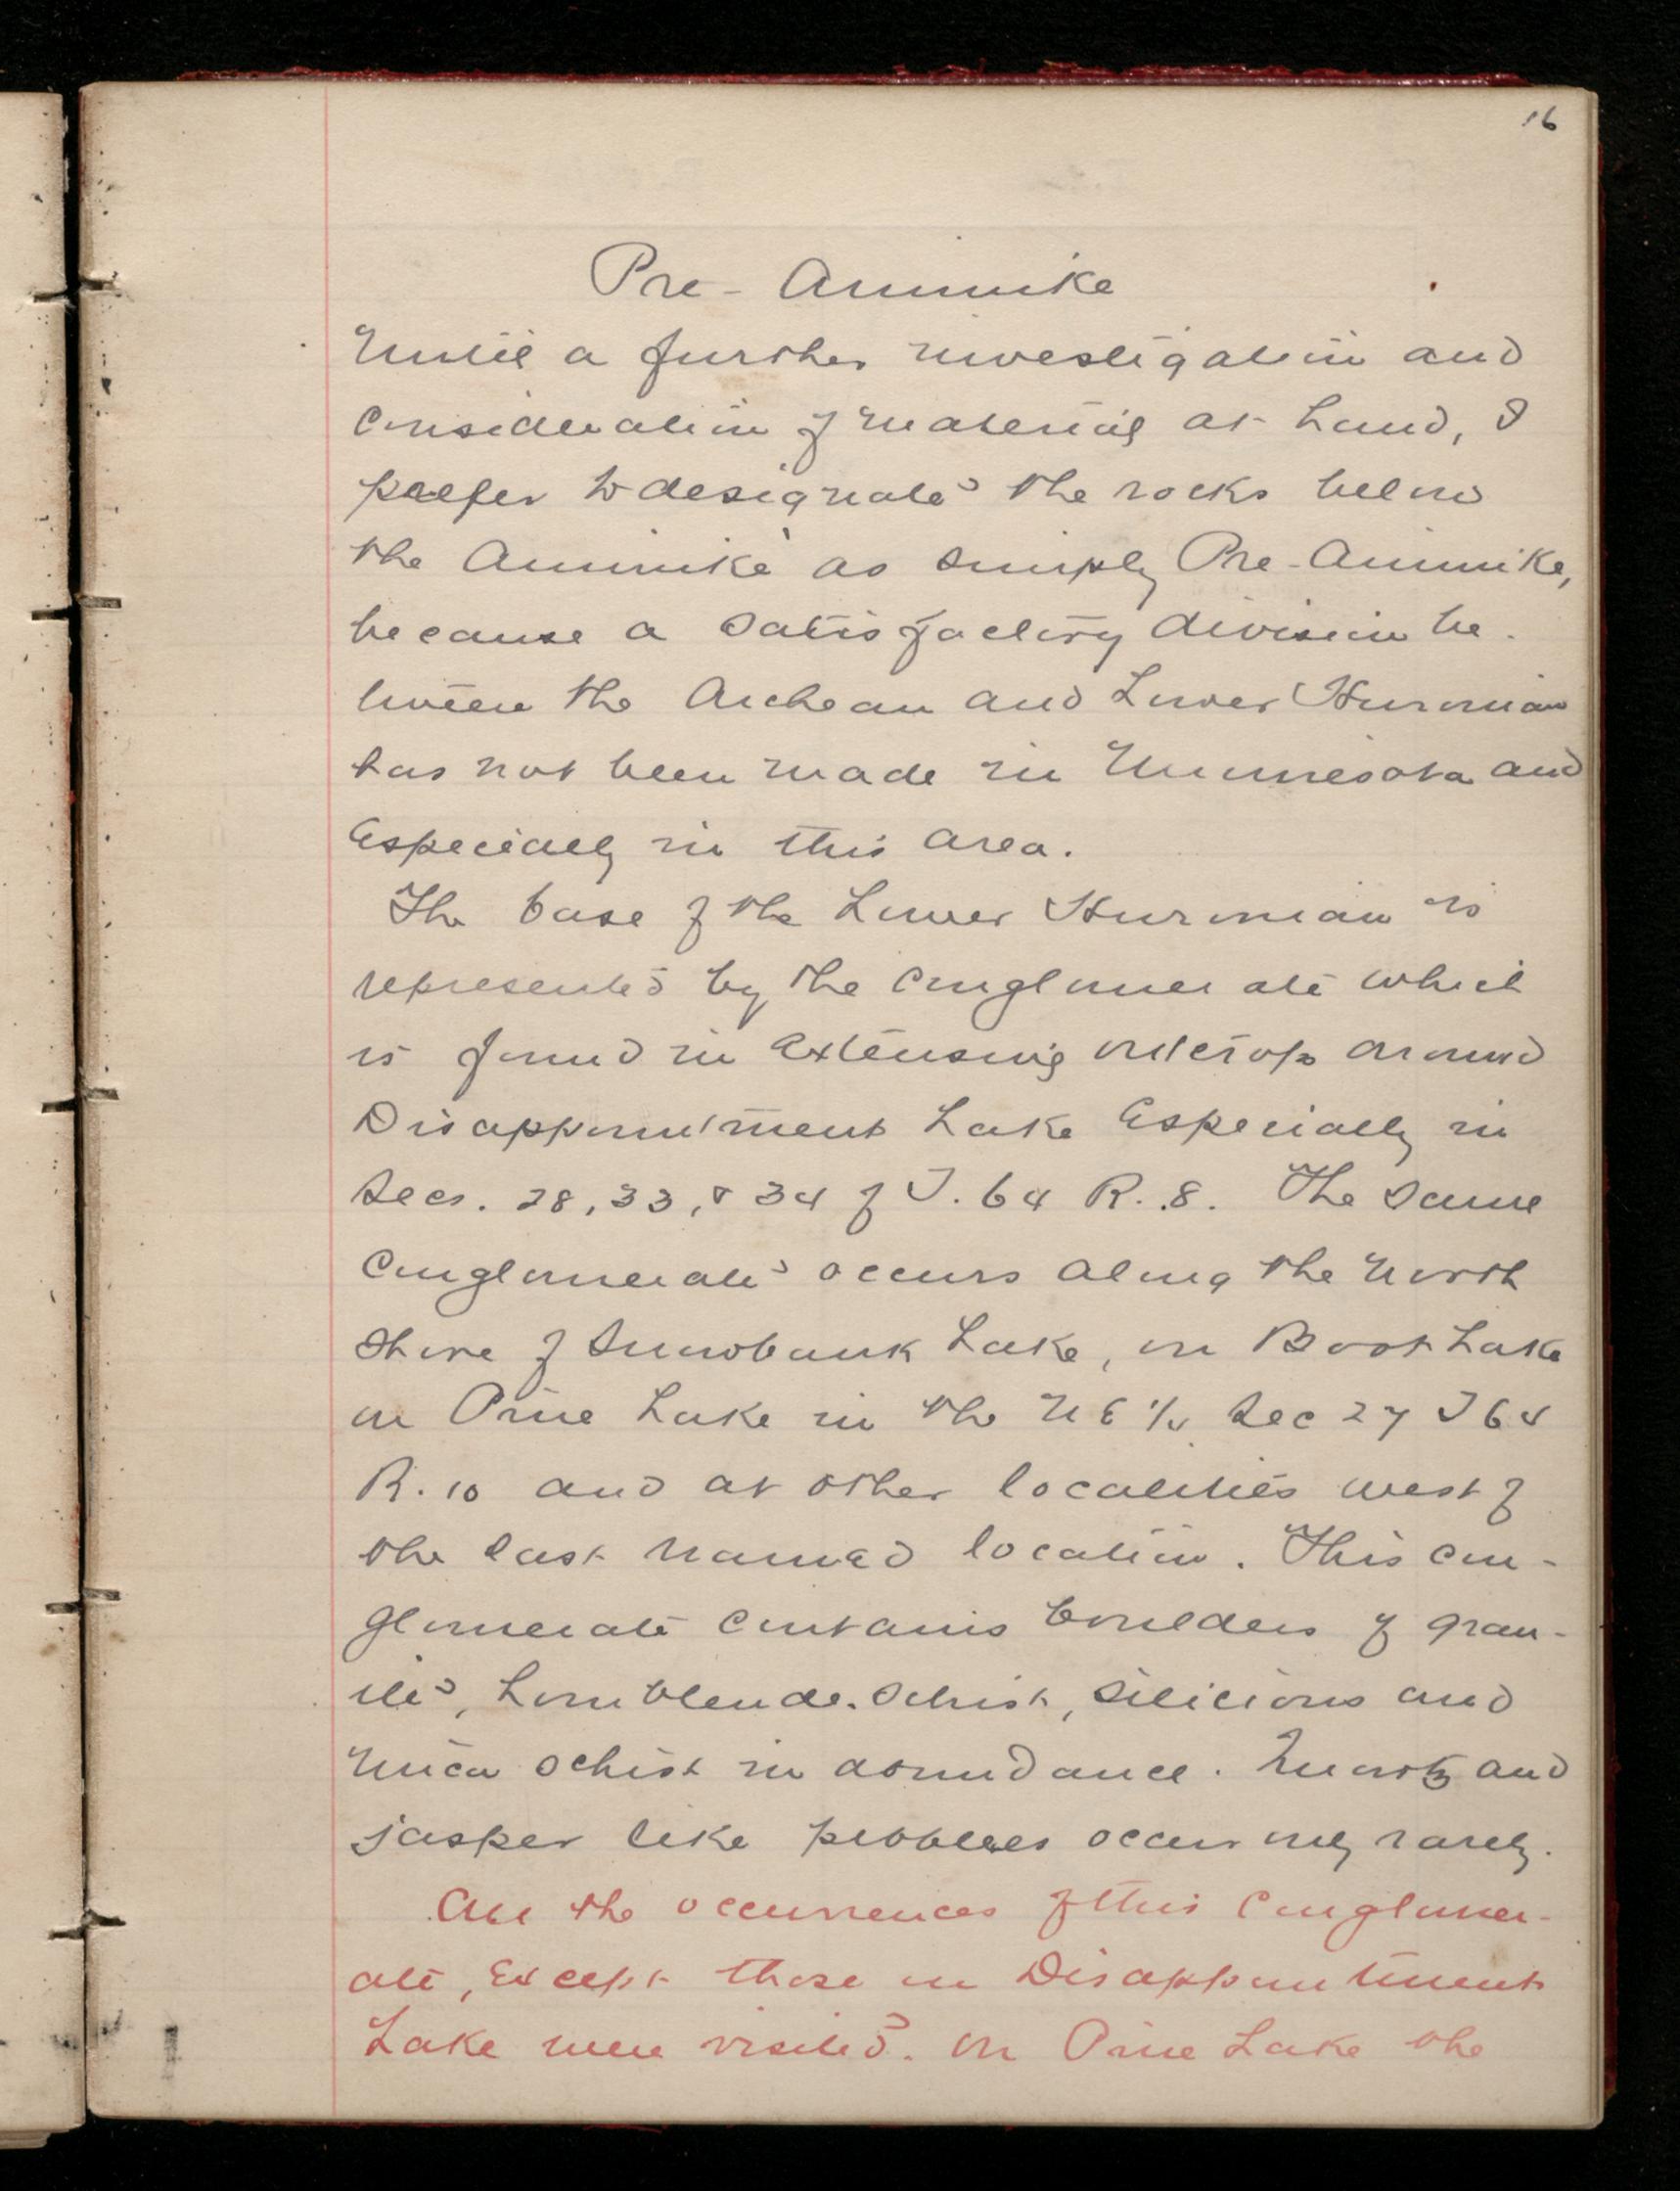 16
Pre-Animike
Until a further investigation and
consideration of material at hand, I
prefer to designate the rocks below
the Animike as simply Pre-Animike,
because a satisfactory division be-
tween the Archean and Lower Huronian
has not been made in Minnesota and
especially in this area.
The base of the Lower Huronian is
represented by the conglomerate which
is found in extensive outcrops around
Disappointment Lake especially in
Secs. 28, 33, & 34 of T. 64 R. 8. The same
conglomerate occurs along the north
shore of Snowbank Lake, on Boot Lake
on Pine Lake in the NE 1/4 Sec 27 T 64
R. 10 and at other localities west of
the last named location. This con-
glomerate contains boulders of gran-
ite, hornblende-schist, silicious and
mica schist in abundance. Quartz and
jasper like pebbles occur only rarely.
All the occurrences of this conglomer-
ate, except those on Disappointment
Lake were visited. On Pine Lake the